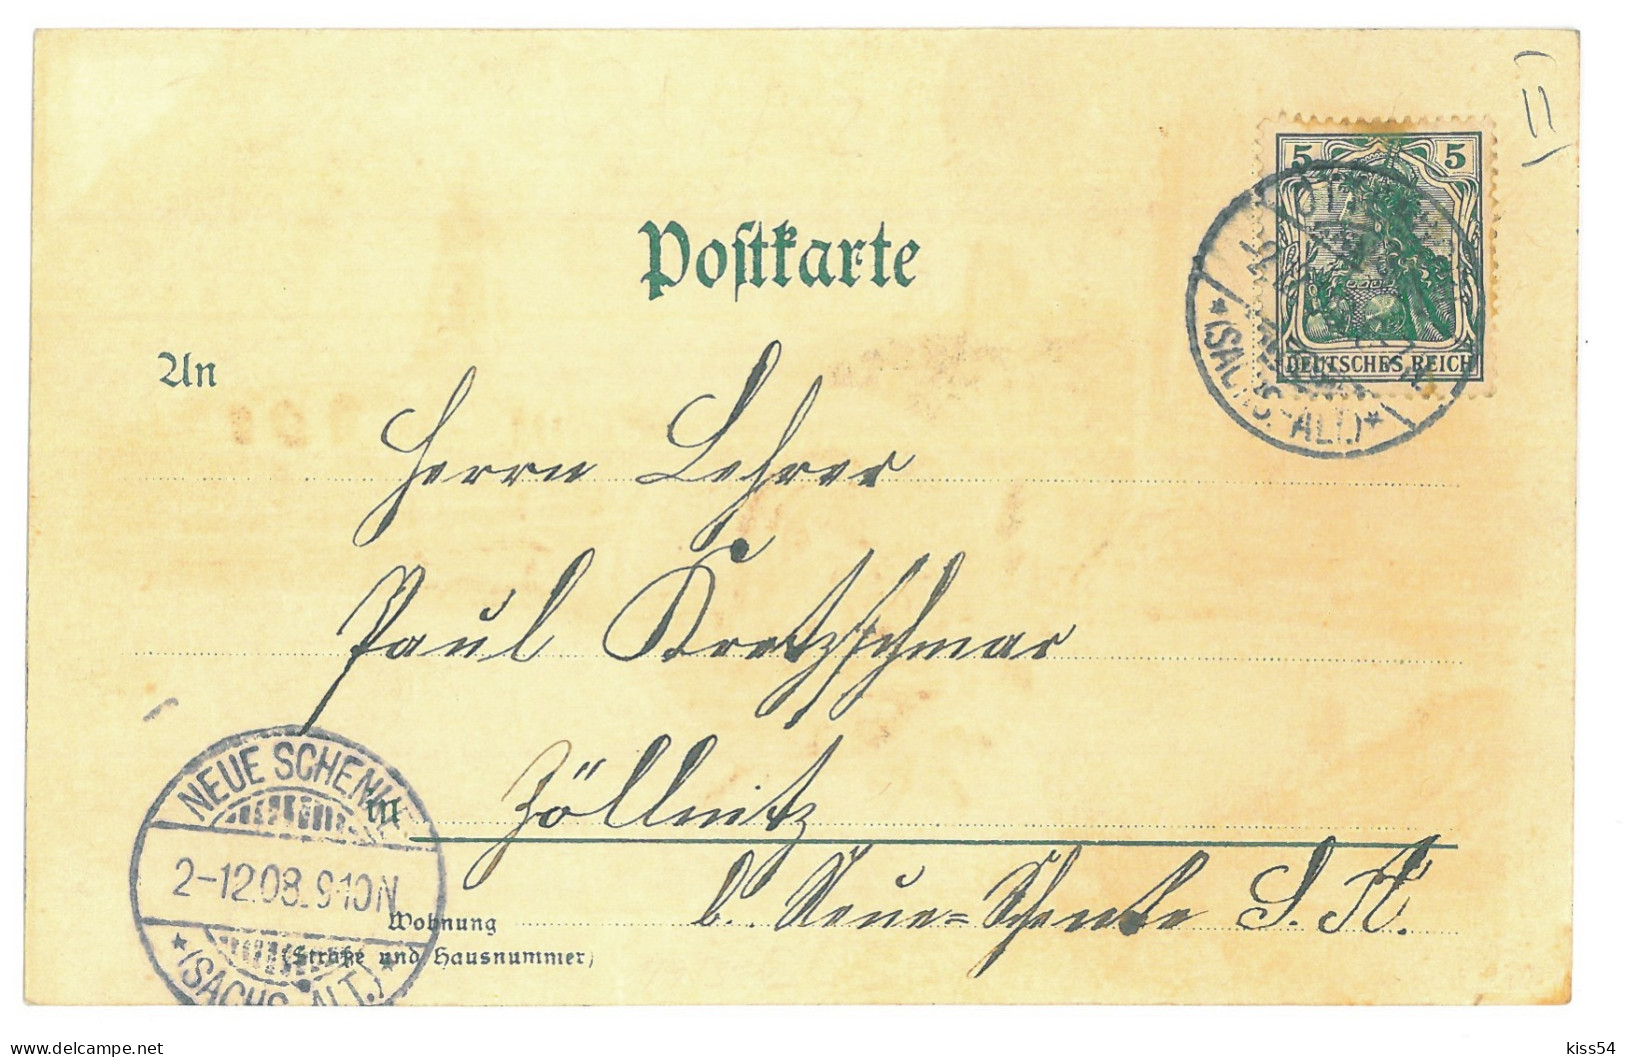 II
5 5
DEUTSCHES REICH
*(SACHS.-ALT.)*
Postkarte
An
Herrn Lehrer
Paul Kretzschmar
in Zöllnitz
b. Neue-Schenke S. A.
Wohnung
(Straße und Hausnummer)
NEUE SCHENKE
2-12.08. 9-10N
*(SACHS.-ALT.)*
kiss54